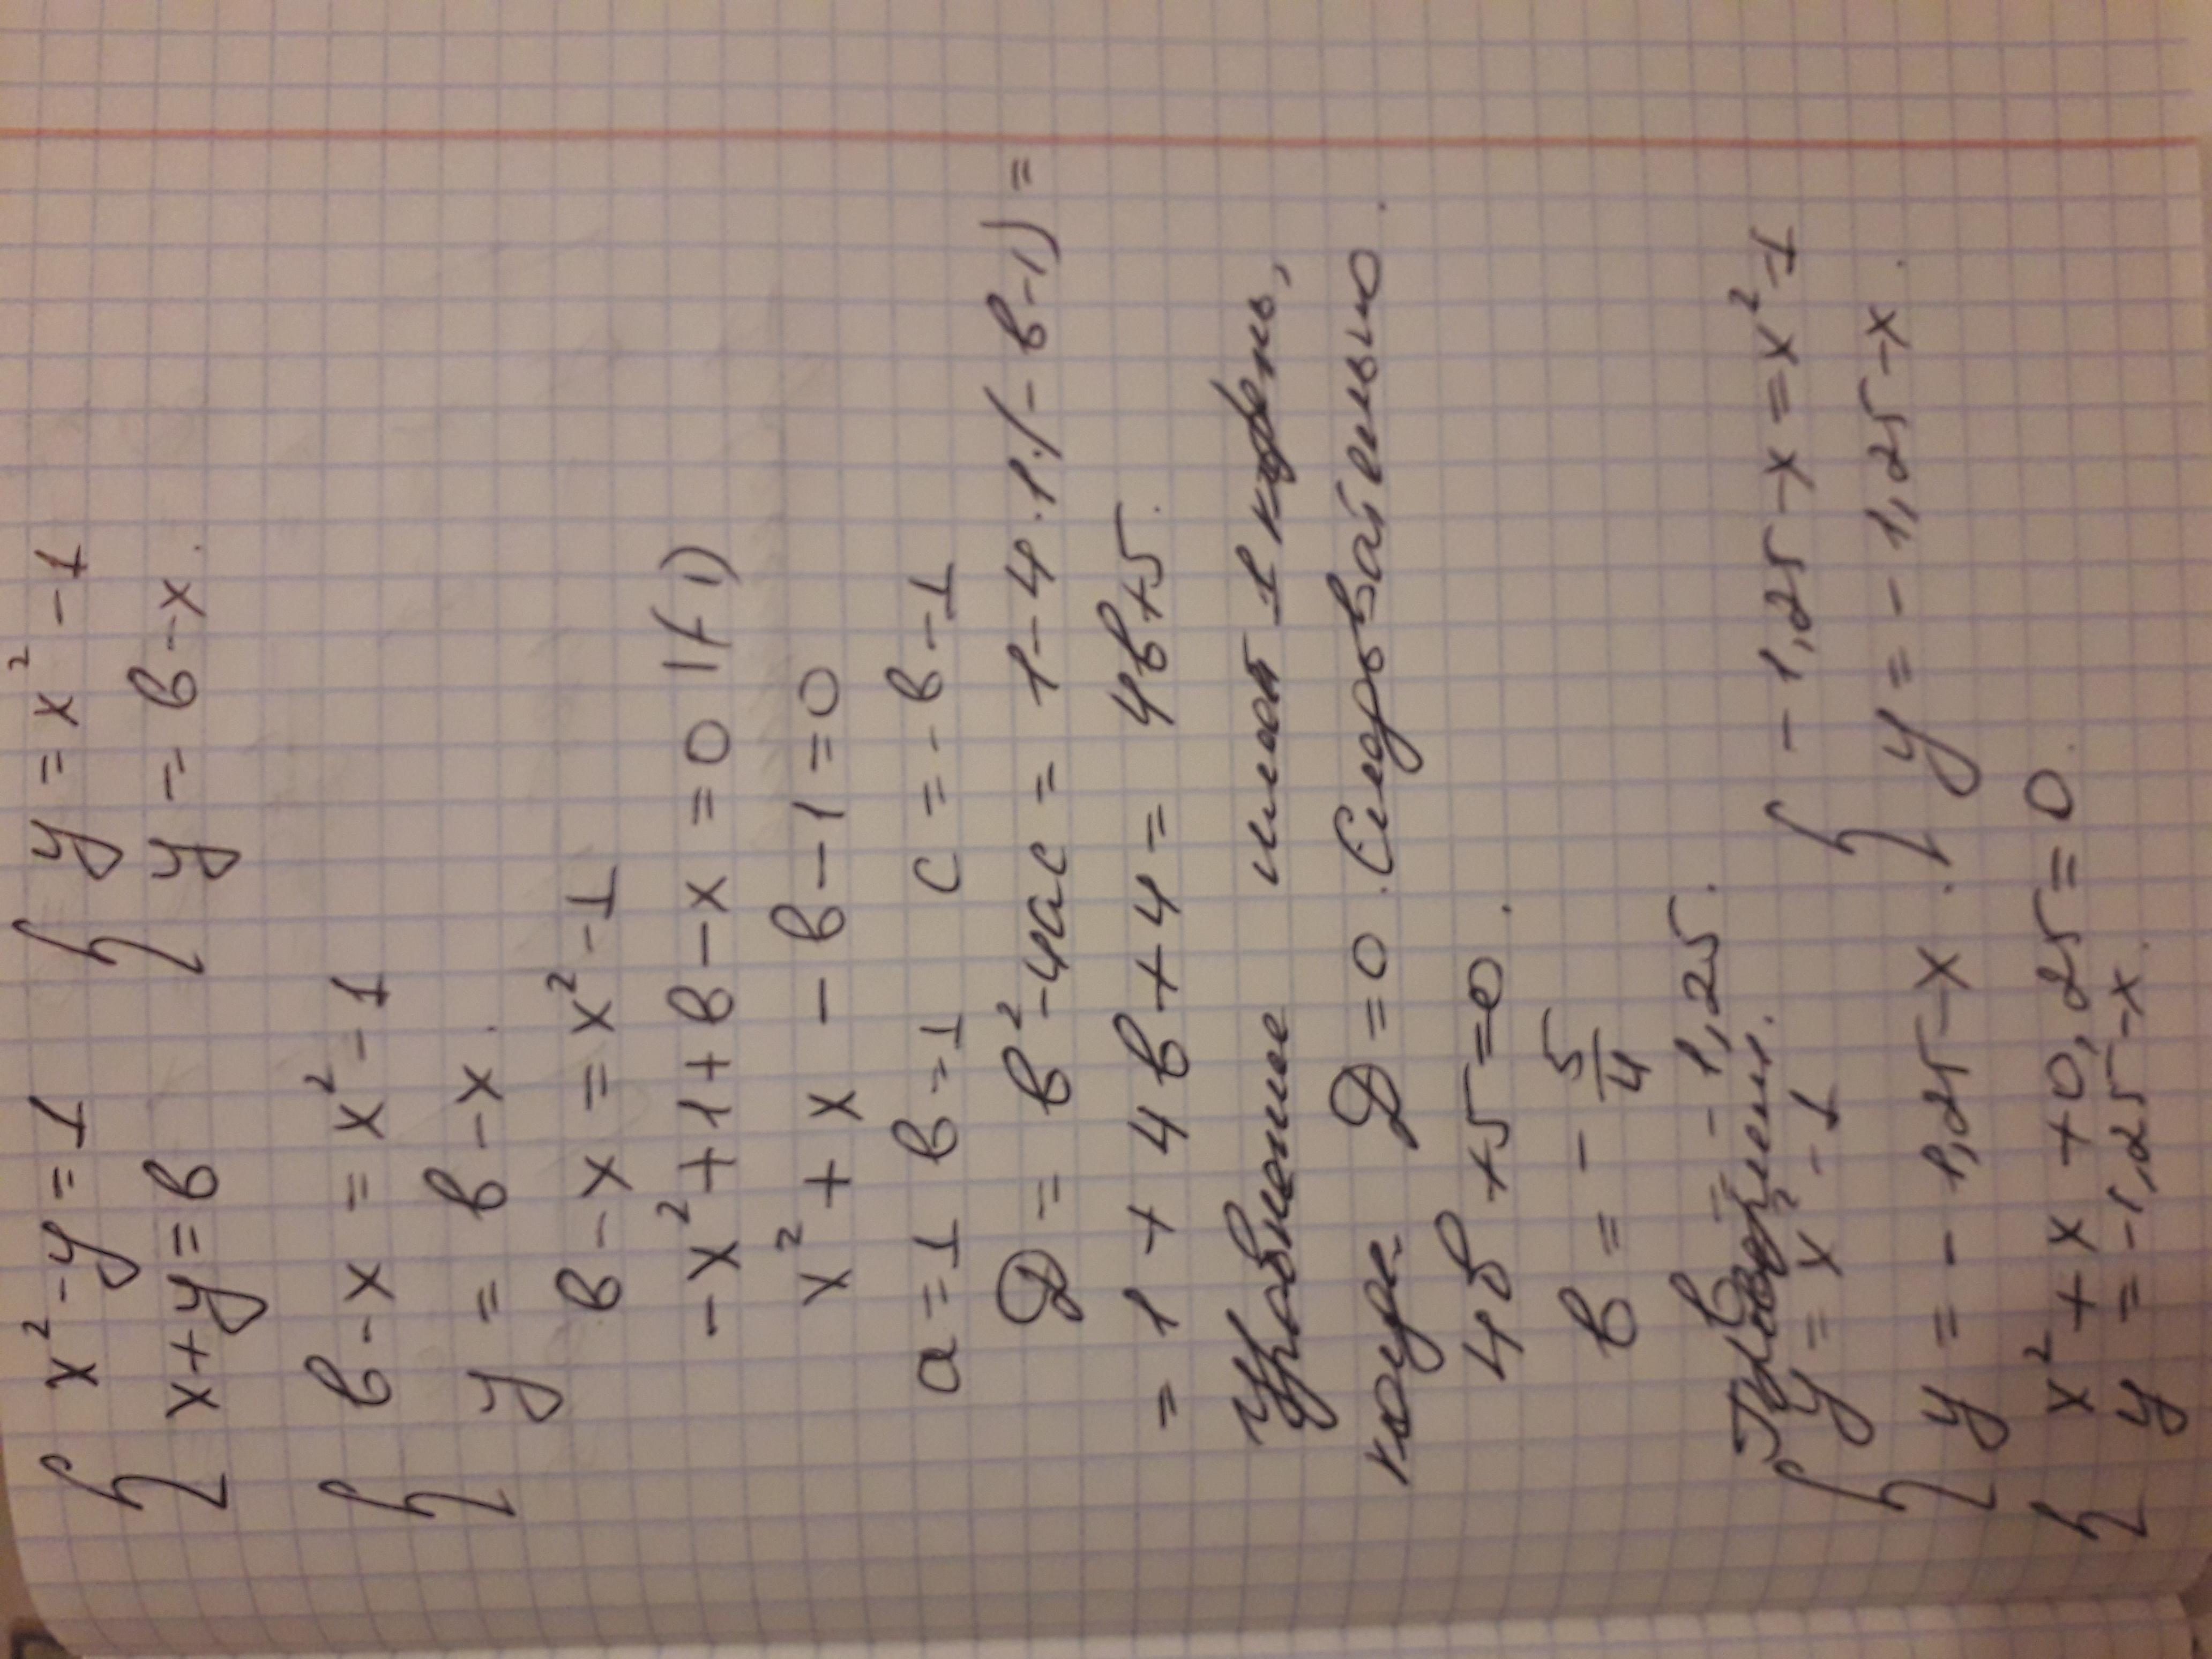 { x² - y = 1 { y = x² - 1
x + y = в y = в - x.
{ в - x = x² - 1
y = в - x.
в - x = x² - 1
-x² + 1 + в - x = 0 |(-1)
x² + x - в - 1 = 0
a = 1 в = 1 c = -в - 1
D = в² - 4ac = 1 - 4·1·(-в-1) =
= 1 + 4в + 4 = 4в + 5.
Уравнение имеет 1 корень,
когда D = 0. Следовательно
4в + 5 = 0.
в = - 5/4
в = -1,25.
{ y = x² - 1 { -1,25 - x = x² - 1
y = -1,25 - x. y = -1,25 - x.
{ x² + x + 0,25 = 0.
y = -1,25 - x.